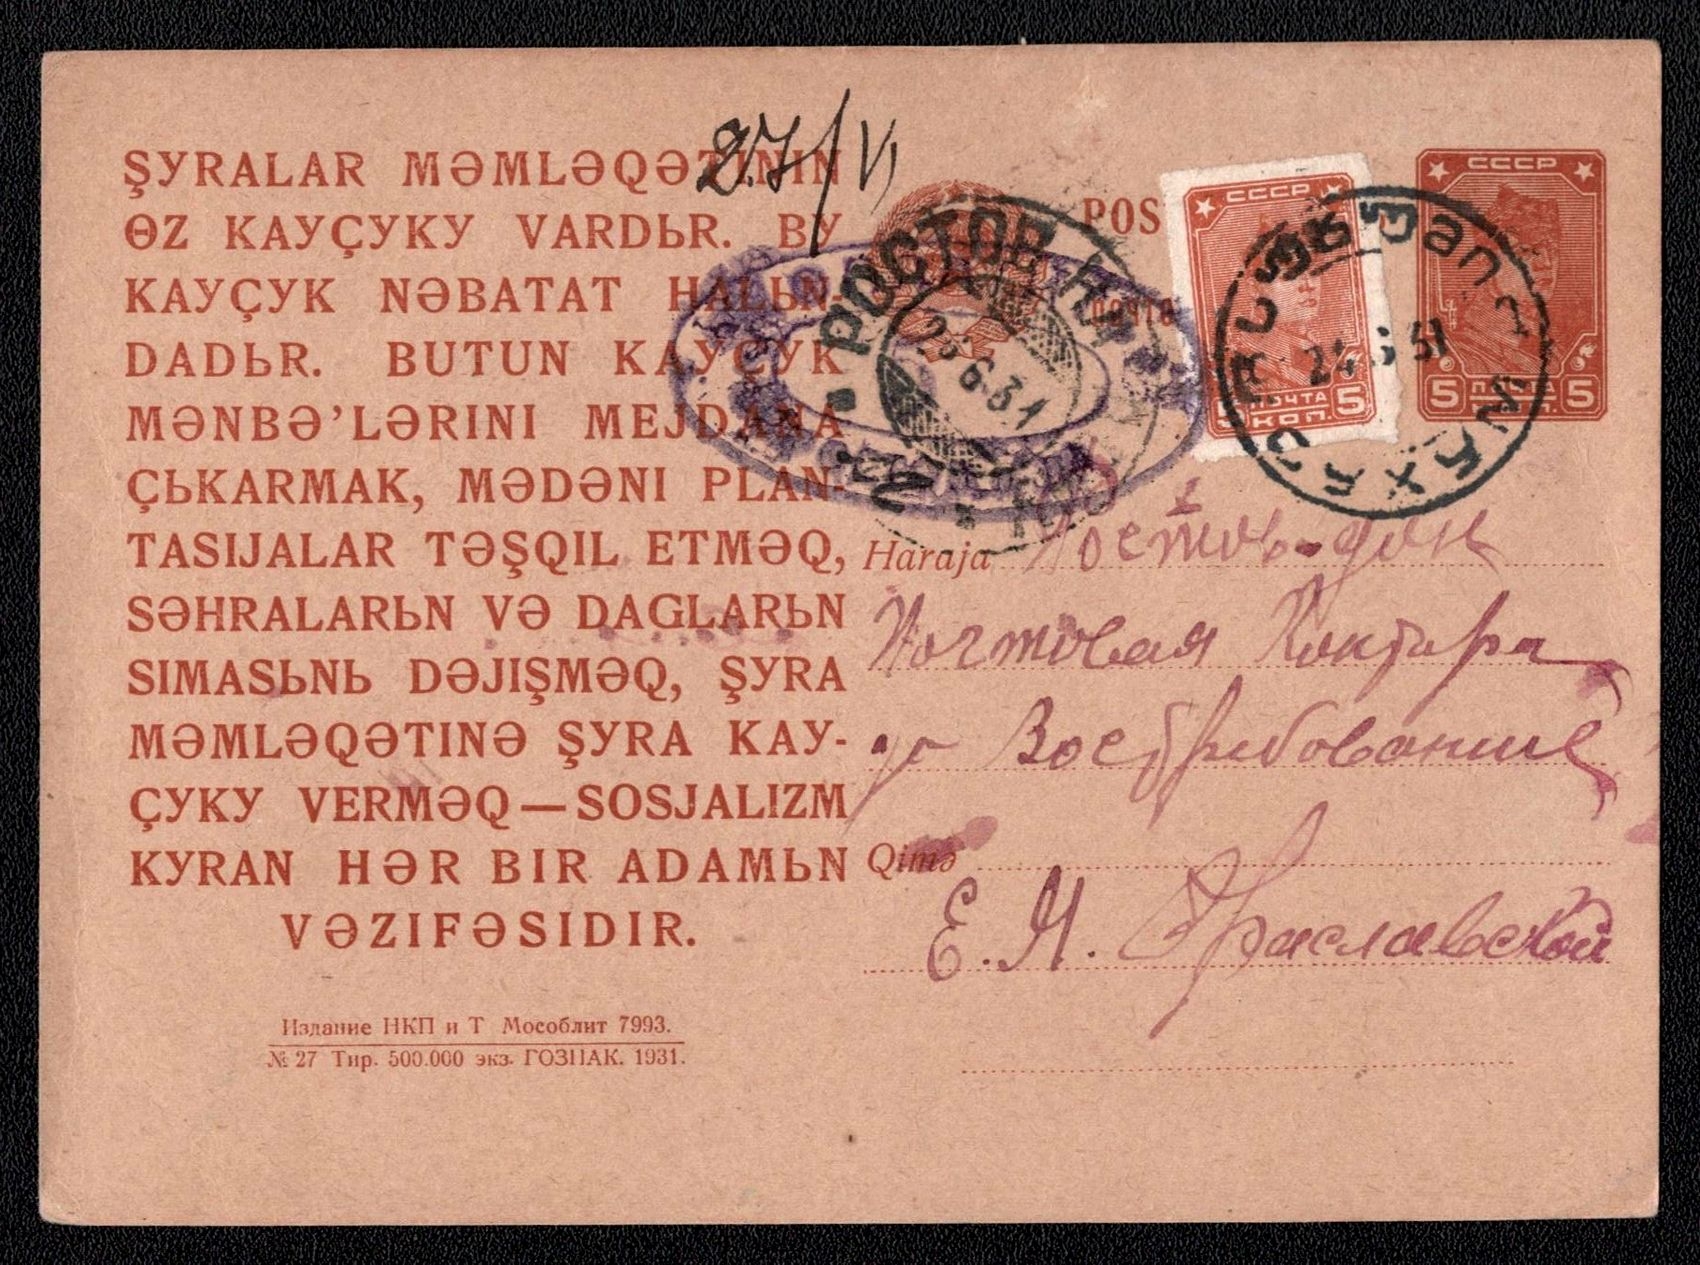 27/VI
ŞYRALAR MƏMLƏQƏTININ
ƟZ KAYÇYKY VARDЬR. BY
KAYÇYK NƏBATAT HALЬN-
DADЬR. BUTUN KAYÇYK
MƏNBƏ'LƏRINI MEJDANA
ÇЬKARMAK, MƏDƏNI PLAN-
TASIJALAR TƏŞQIL ETMƏQ,
SƏHRALARЬN VƏ DAGLARЬN
SIMASЬNЬ DƏJIŞMƏQ, ŞYRA
MƏMLƏQƏTINƏ ŞYRA KAY-
ÇYKY VERMƏQ—SOSJALIZM
KYRAN HƏR BIR ADAMЬN
VƏZIFƏSIDIR.
Издание НКП и Т Мособлит 7993.
№ 27 Тир. 500.000 экз. ГОЗНАК. 1931.
POS
СССР
ПОЧТА
5 КОП. 5
СССР
5 5
РОСТОВ Н
26.6.31
24 6 31
Haraja Ростов-дон
Почтовая Контора
до Востребования
Qimə
Е. Я.